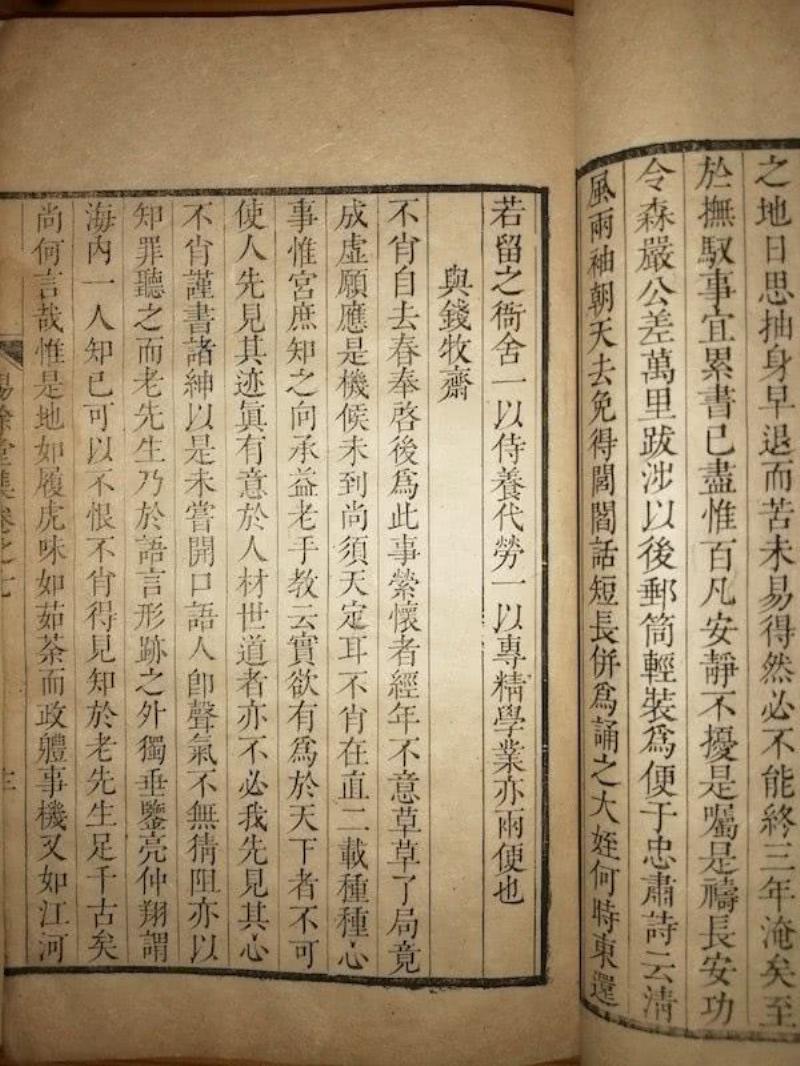 之地日思抽身早退而苦未易得然必不能終三年淹矣至
於撫馭事宜累書已盡惟百凡安靜不擾是囑是禱長安功
令森嚴公差萬里跋涉以後郵筒輕裝爲便于忠肅詩云淸
風兩袖朝天去免得閭閻話短長併爲誦之大姪何時東還
若留之衙舍一以侍養代勞一以專精學業亦兩便也
與錢牧齋
不肯自去春奉啓後爲此事縈懷者經年不意草草了局竟
成虛願應是機候未到尚須天定耳不肖在直二載種種心
事惟宮庶知之向承益老手教云實欲有爲於天下者不可
使人先見其迹眞有意於人材世道者亦不必我先見其心
不肖謹書諸紳以是未嘗開口語人卽聲氣不無猜阻亦以
知罪聽之而老先生乃於語言形跡之外獨垂鑒亮仲翔謂
海內一人知已可以不恨不肖得見知於老先生足千古矣
尚何言哉惟是地如履虎味如茹荼而政體事機又如江河
餘堂集卷之七